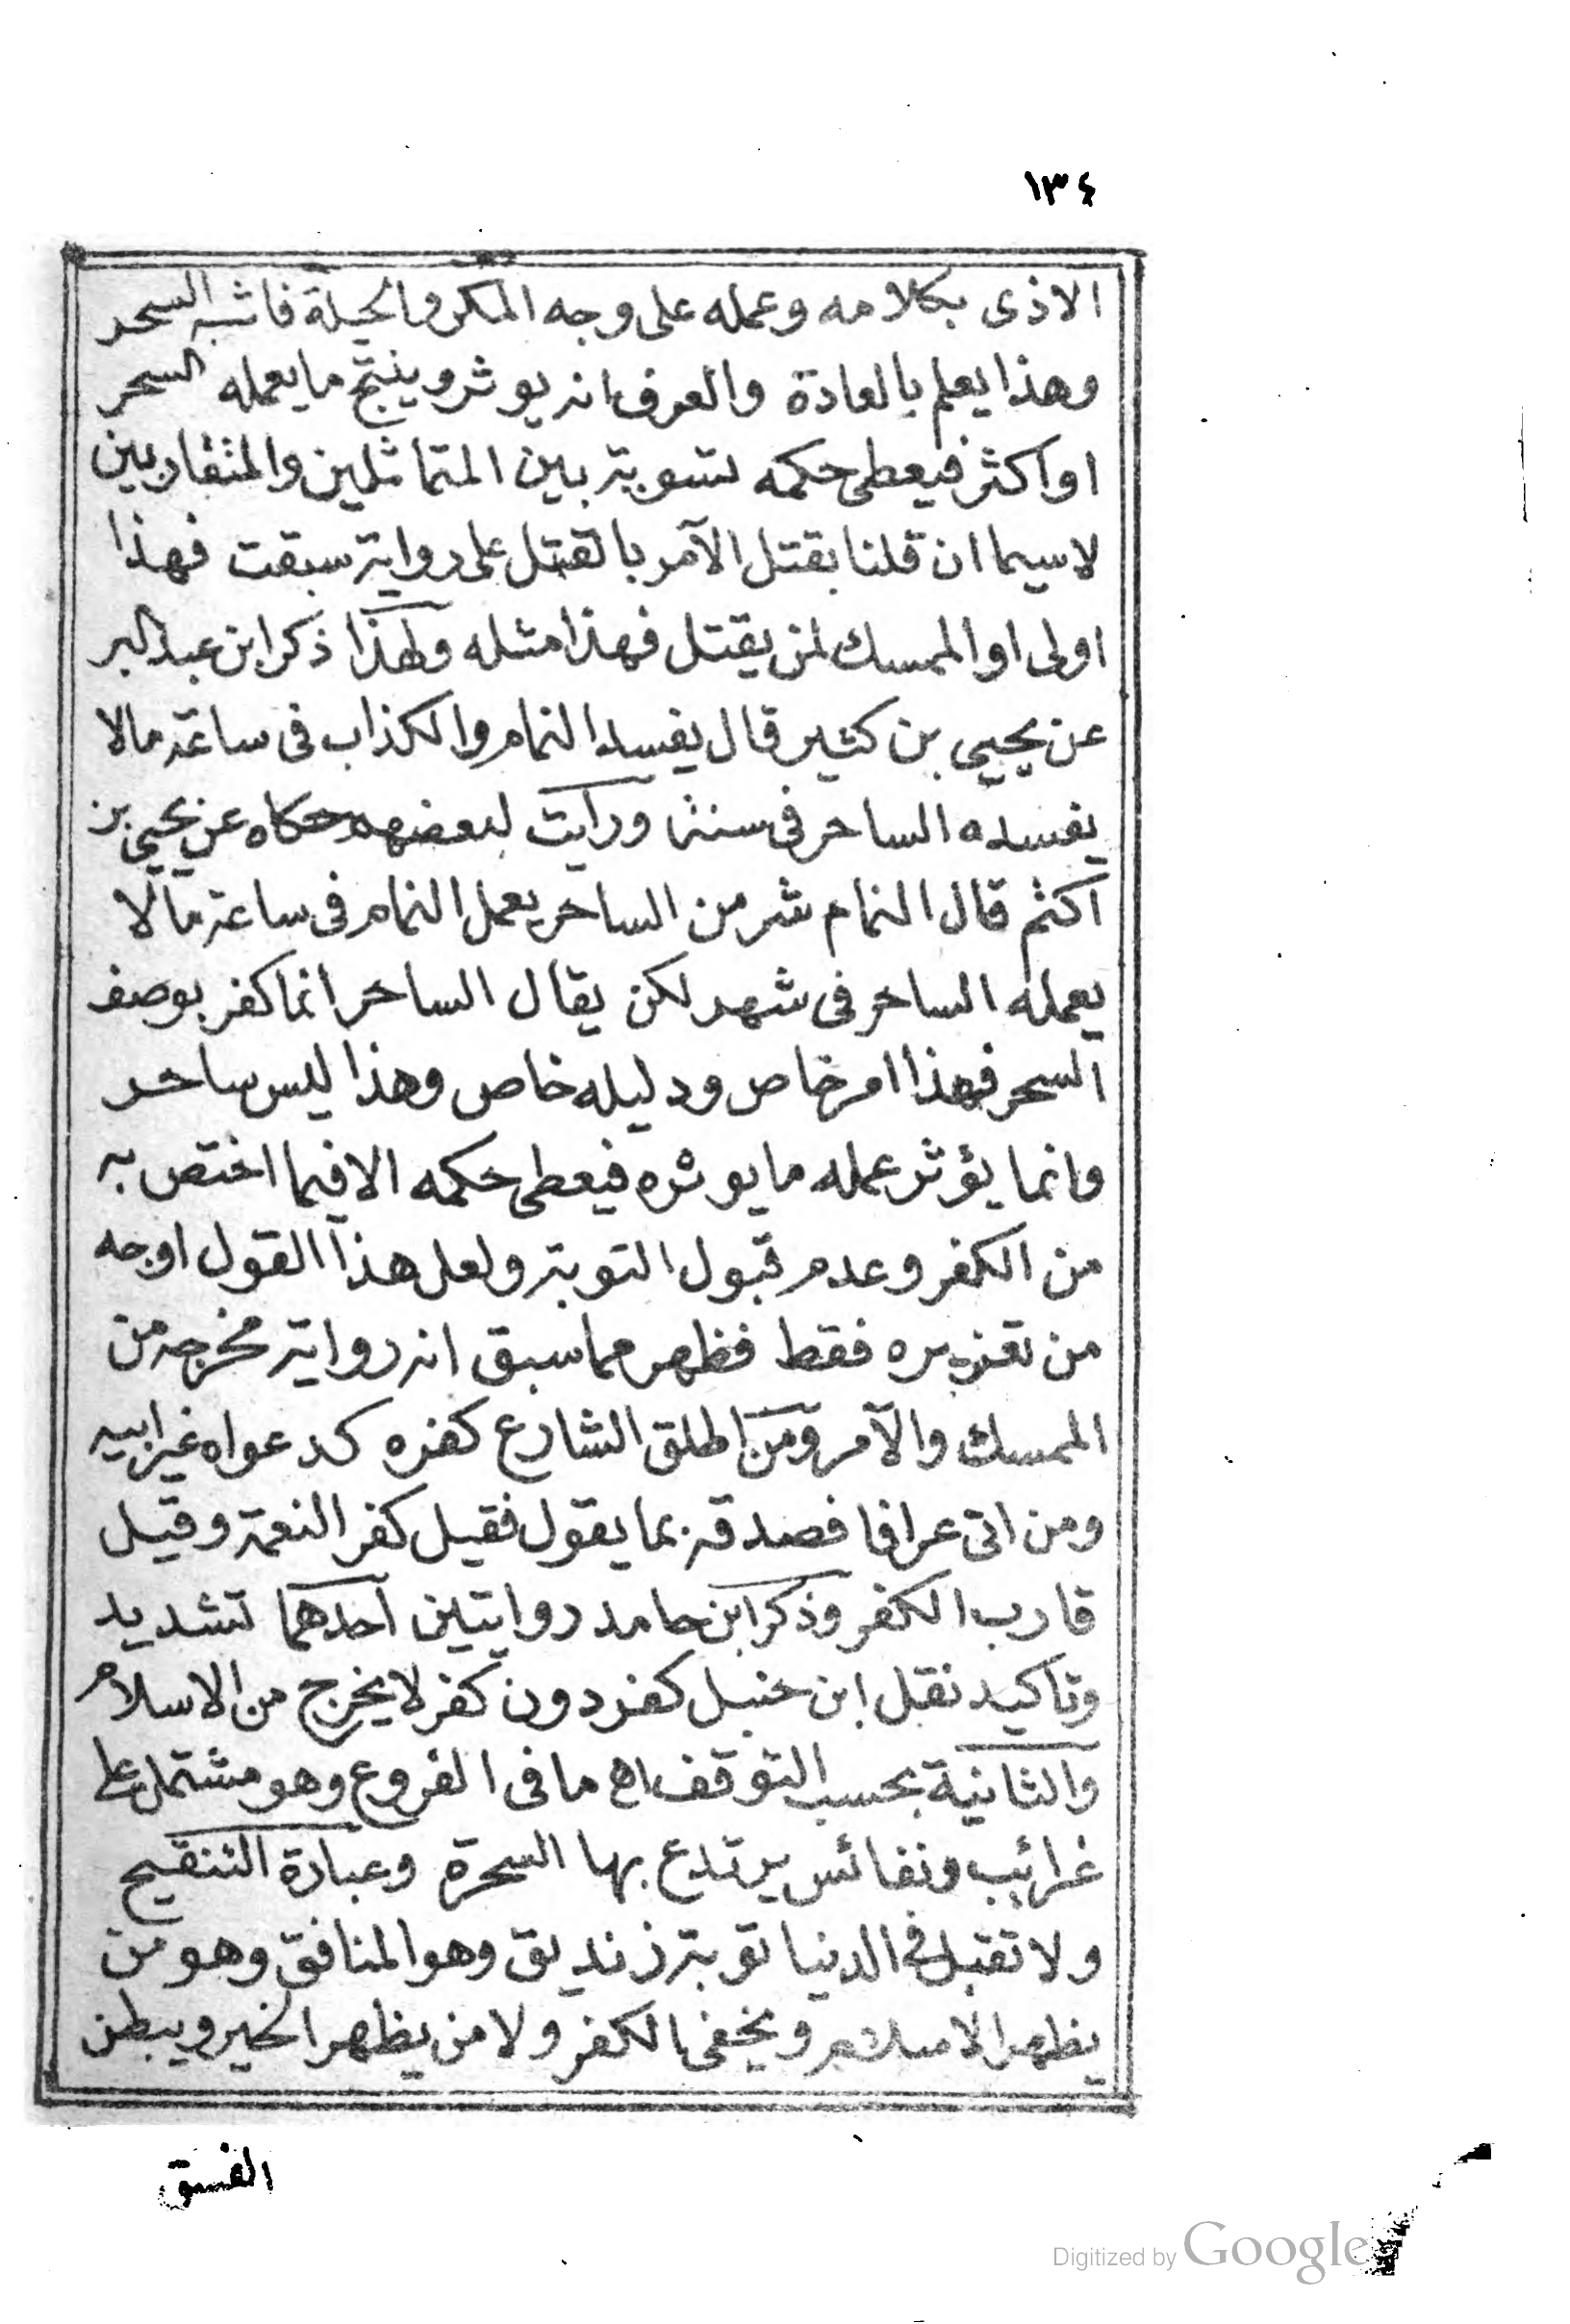 ١٣٤
الاذى بكلامه وعمله على وجه المكر والحيلة فاشبه السحر
وهذا يعلم بالعادة والعرف انه يوثر وينتج ما يعمله السحر
او اكثر فيعطى حكمه تسوية بين المتماثلين والمتقاربين
لاسيما ان قلنا بقتل الآمر بالقتل على رواية سبقت فهذا
اولى او الممسك لمن يقتل فهذا مثله ولهذا ذكر ابن عبد البر
عن يحيى بن كثير قال يفسد النمام والكذاب فى ساعة مالا
يفسده الساحر فى سنة ورايت لبعضهم حكاه عن يحيى بن
اكثم قال النمام شر من الساحر يعمل النمام فى ساعة مالا
يعمله الساحر فى شهر لكن يقال الساحر انما كفر بوصف
السحر فهذا امر خاص ودليله خاص وهذا ليس ساحر
وانما يؤثر عمله ما يوثره فيعطى حكمه الا فيما اختص به
من الكفر وعدم قبول التوبة ولعل هذا القول اوجه
من تعزيره فقط فظهر مما سبق انه رواية مخرجه من
الممسك والآمر ومن اطلق الشارع كفره كدعواه غير ابيه
ومن اتى عرافا فصدقه بما يقول فقيل كفر النعمة وقيل
قارب الكفر وذكر ابن حامد روايتين احدهما تشديد
وتاكيد نقل ابن حنبل كفر دون كفر لا يخرج من الاسلام
والثانية بحسب التوقف اه ما فى الفروع وهو مشتمل على
غرائب ونفائس يرتدع بها السحرة وعبارة التنقيح
ولا تقبل فى الدنيا توبة زنديق وهو المنافق وهو من
يظهر الاسلام ويخفى الكفر ولا من يظهر الخير ويبطن
الفسق
Digitized by Google